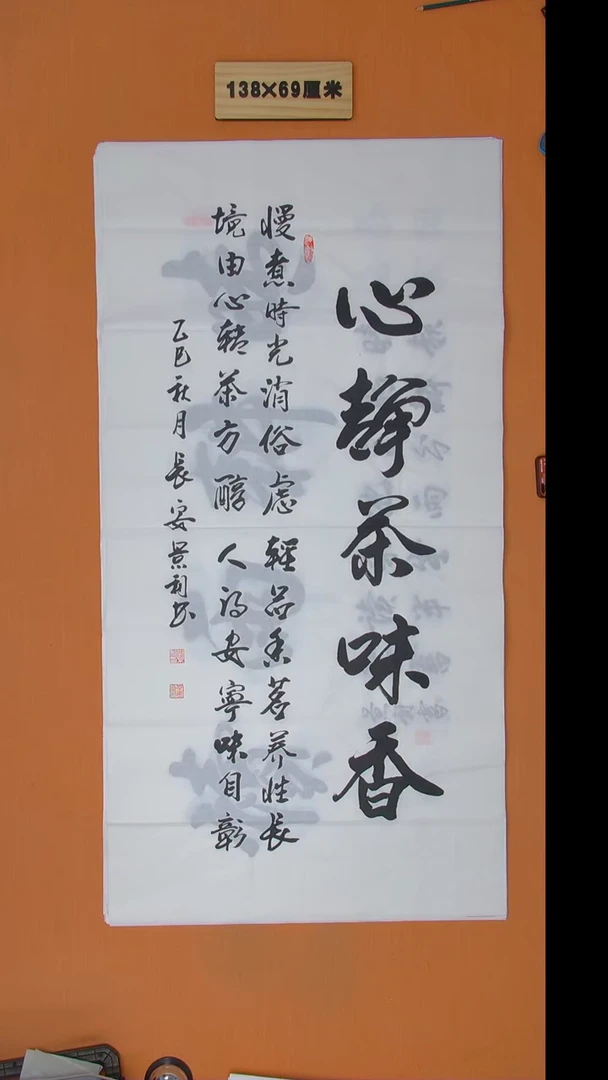 138×69厘米
心靜茶味香
慢煮時光消俗慮輕品香茗养性長
境由心轉茶方醇人得安寧味自彰
乙巳秋月長安景利书